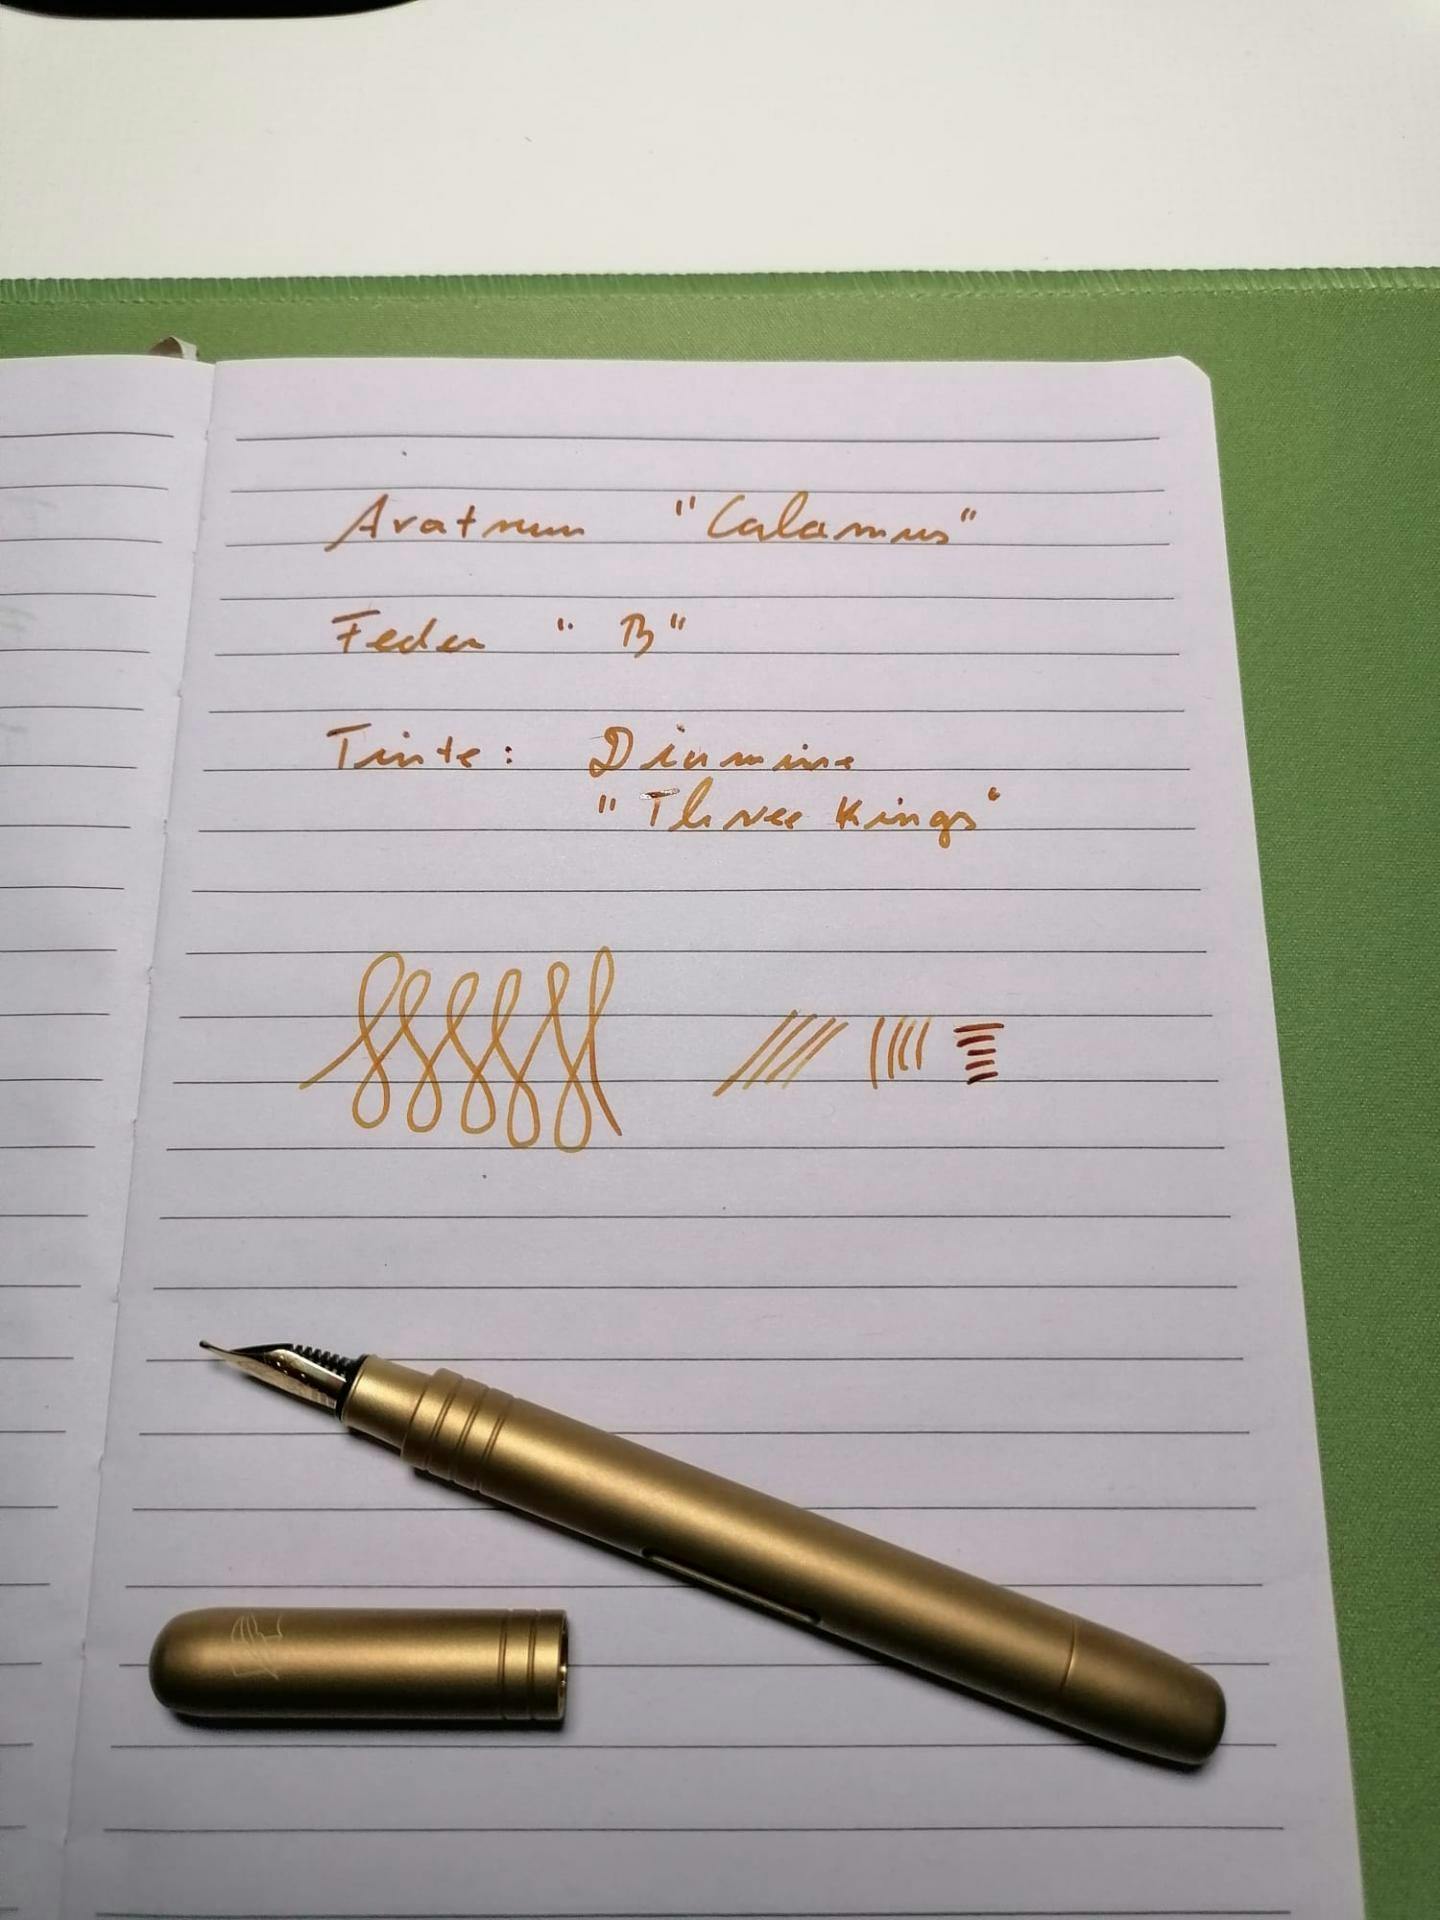 Aratrum "Calamus"
Feder "B"
Tinte: Diamine
"Three Kings"